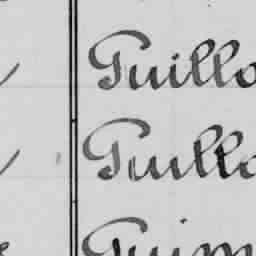 Guillo
Guillo
Guim